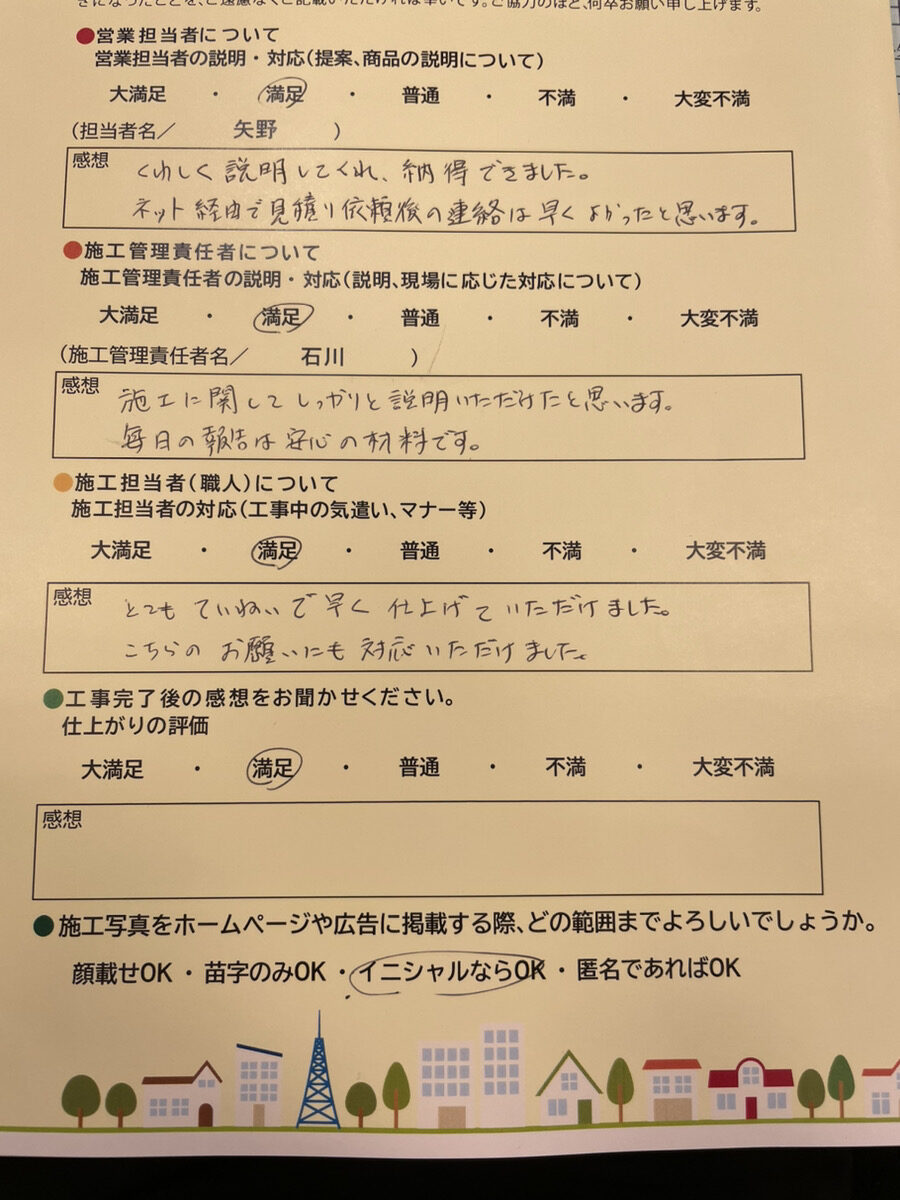 きになったことを、ご遠慮なくご記載いただければ幸いです。ご協力のほど、何卒お願い申し上げます。
●営業担当者について
営業担当者の説明・対応(提案、商品の説明について)
大満足 ・ 満足 ・ 普通 ・ 不満 ・ 大変不満
(担当者名/ 矢野 )
感想
くわしく説明してくれ、納得できました。
ネット経由で見積り依頼後の連絡は早くよかったと思います。
●施工管理責任者について
施工管理責任者の説明・対応(説明、現場に応じた対応について)
大満足 ・ 満足 ・ 普通 ・ 不満 ・ 大変不満
(施工管理責任者名/ 石川 )
感想
施工に関してしっかりと説明いただけたと思います。
毎日の報告は安心の材料です。
●施工担当者(職人)について
施工担当者の対応(工事中の気遣い、マナー等)
大満足 ・ 満足 ・ 普通 ・ 不満 ・ 大変不満
感想
とてもていねいで早く仕上げていただけました。
こちらのお願いにも対応いただけました。
●工事完了後の感想をお聞かせください。
仕上がりの評価
大満足 ・ 満足 ・ 普通 ・ 不満 ・ 大変不満
感想
●施工写真をホームページや広告に掲載する際、どの範囲までよろしいでしょうか。
顔載せOK ・ 苗字のみOK ・ イニシャルならOK ・ 匿名であればOK